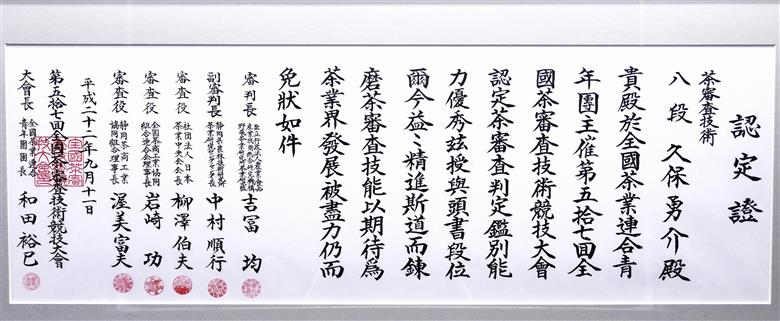 認定證
茶審査技術
八段 久保勇介殿
貴殿於全國茶業連合青
年團主催第五拾七回全
國茶審査技術競技大會
認定茶審査判定鑑別能
力優秀玆授與頭書段位
爾今益々精進斯道而錬
磨茶審査技能以期待爲
茶業界發展被盡力仍而
免狀如件
審判長 吉冨 均
副審判長 中村順行
審査役 社団法人日本茶業中央会会長 柳澤伯夫
審査役 全国茶商工業協同組合連合会理事長 岩崎 功
審査役 静岡茶商工業協同組合理事長 渥美富夫
平成二十二年九月十一日
第五拾七回全國茶審査技術競技大會
大會長 全國茶業連合青年團團長 和田裕巳